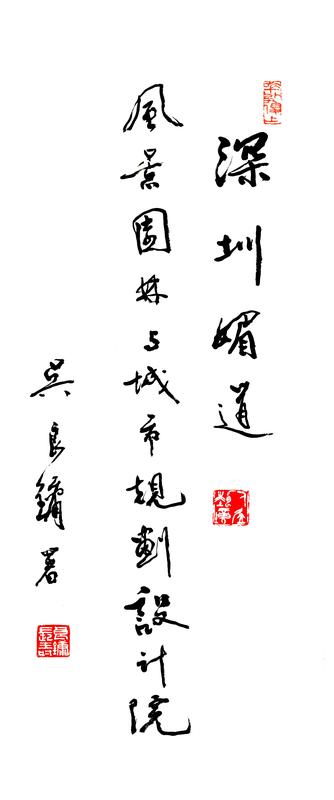 深圳媚道
風景園林与城市規劃設計院
吴良鏞署